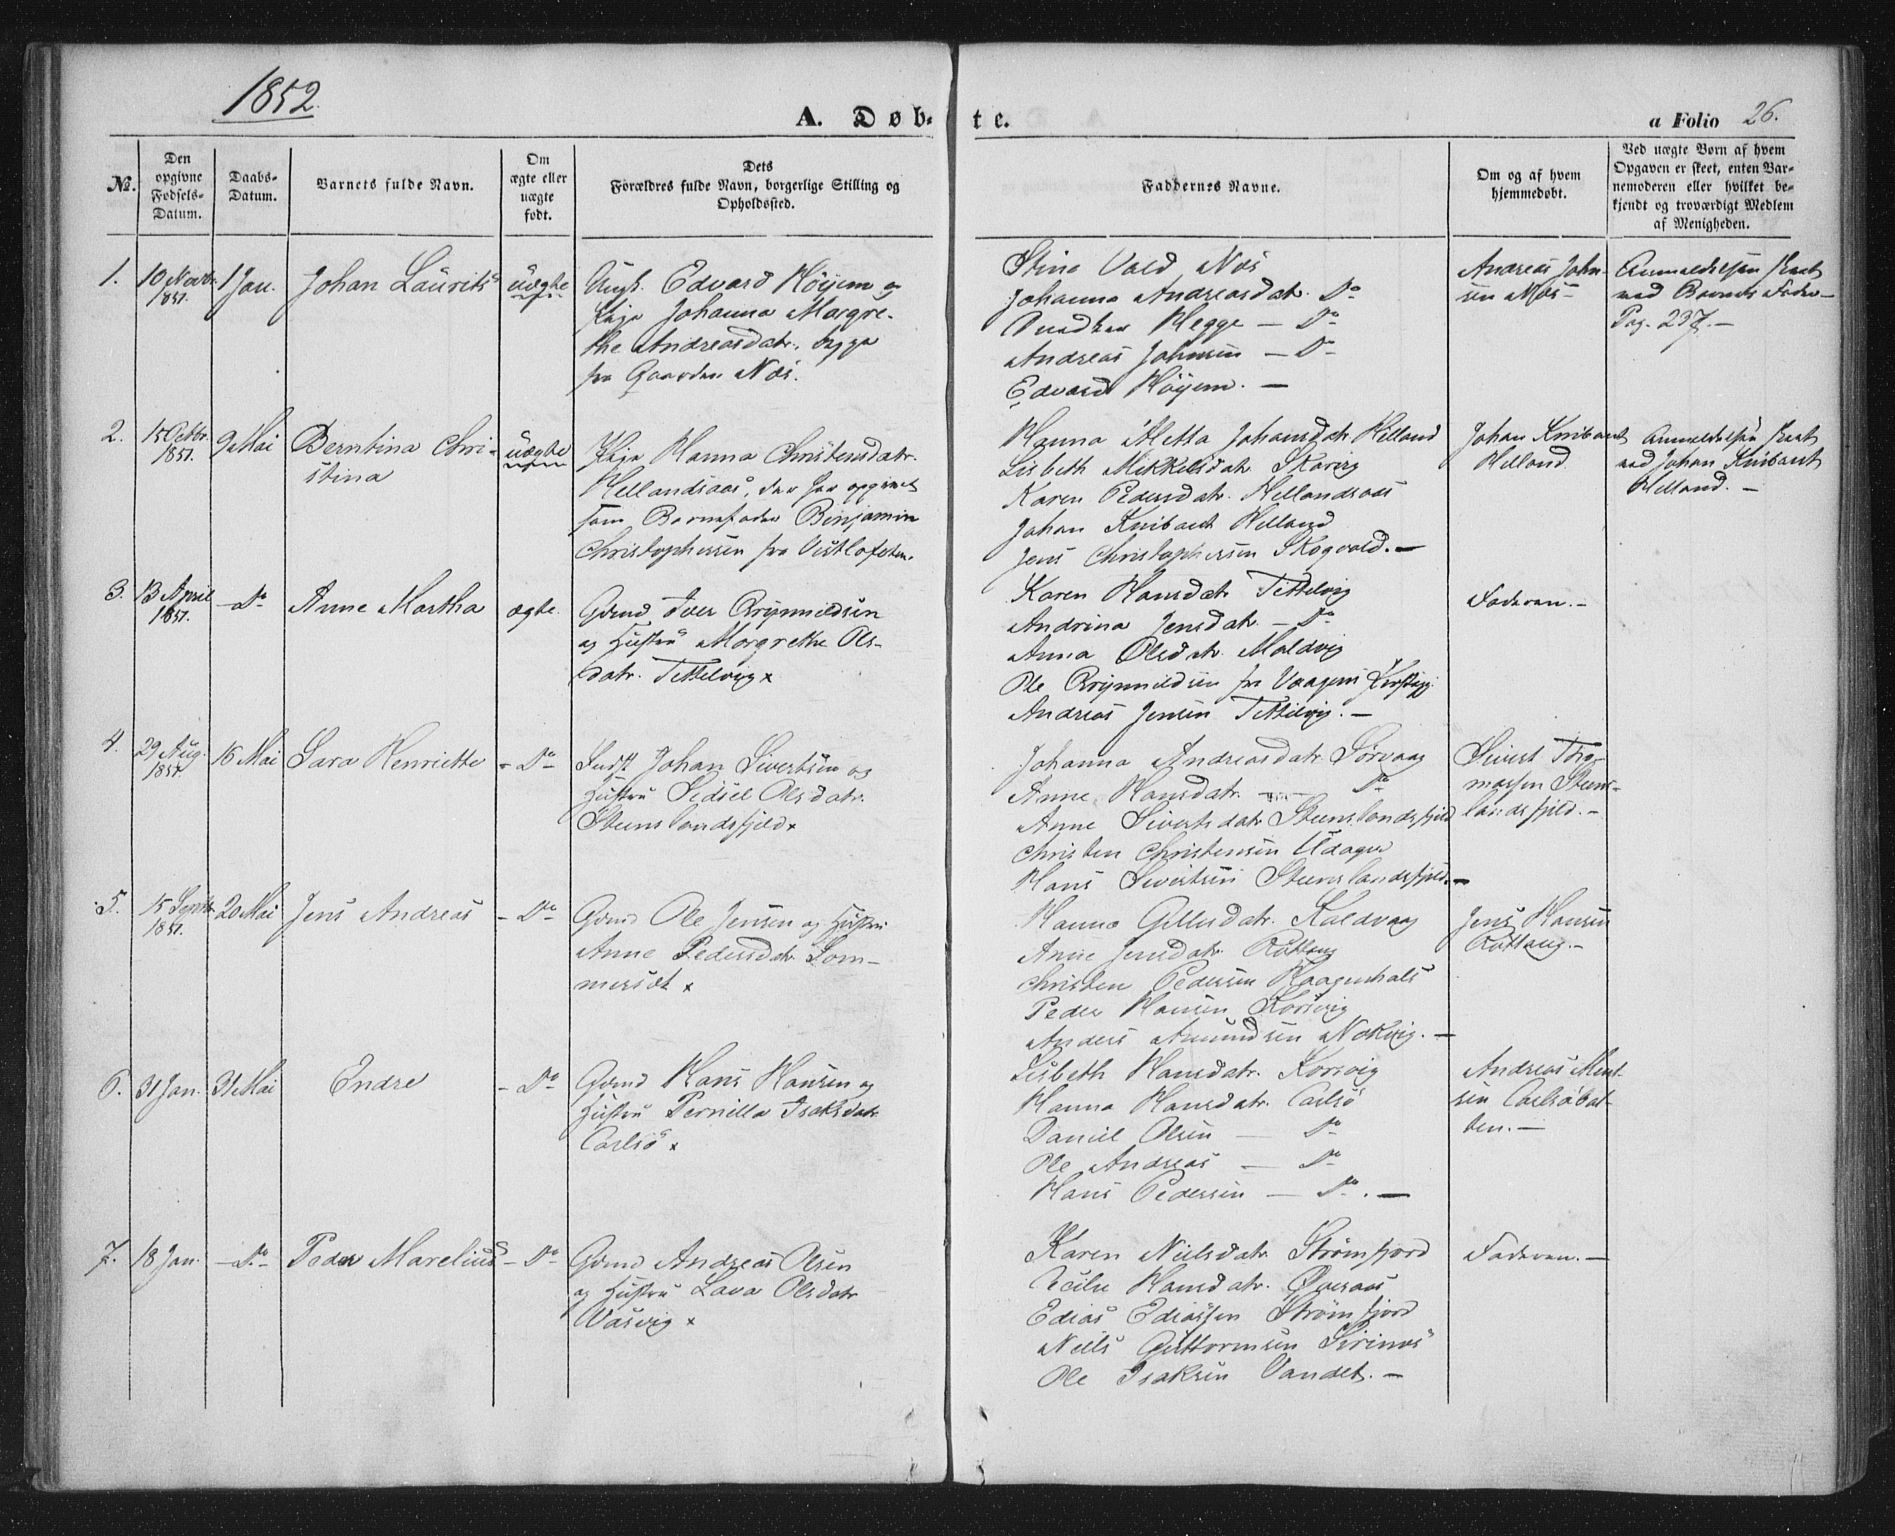 1852.
A. Døb-
te.
a Folio 26.
No.
Den
opgivne
Fødsels-
Datum.
Daabs-
Datum.
Barnets fulde Navn.
Om
ægte eller
uægte
født.
Dets
Forældres fulde Navn, borgerlige Stilling og
Opholdssted.
Faddernes Navne.
Om og af hvem
hjemmedøbt.
Ved uægte Børn af hvem
Opgaven er skeet, enten Bar-
nemoderen eller hvilket be-
kjendt og troværdigt Medlem
af Menigheden.
1.
10 Novbr.
1851.
1 Jan.
Johan Laurits
uægte
Ungk. Edvard Höyem og
Pige Johanna Margre-
the Andreasdatr. begge
fra Gaarden Næs.
Stina Vold Næs
Johanna Andreasdatr. Do
Hegge — Do
Andreas Johnsen — Do
Edvard Höyem. —
Andreas John-
sen Næs —
Anmeldelsen skeet
ved Barnets Fader —
Pag. 237. —
2.
15 Octbr.
1851.
9 Mai
Berntina Chri-
stina
uægte
Pige Hanna Christensdatr.
Hellandsaas, der har opgivet
som Barnefader Benjamin
Christophersen fra Vestlofoten.
Hanna Aletta Johansdatr. Helland
Lisbeth Mikkelsdatr. Skarvig
Karen Pedersdatr. Hellandsaas
Johan Helland
Jens Christophersen Skogvold. —
Johan
Helland.
Anmeldelsen skeet
ved Johan
Helland. —
3.
13 April
1851.
— Do
Anne Martha
ægte.
Gdmd Iver Brynnildsen
og Hustru Margrethe Ols-
datr. Tettelvig x
Karen Hansdatr. Tettelvig
Andrina Jensdatr. — Do
Anna Olsdatr. Maldvig
Ole Brynnildsen fra Vaagens Præstegj.
Andreas Jensen Tettelvig. —
Faderen. —
4.
29 Aug.
1851.
16 Mai
Sara Henriette
— Do
Indst Johan Sivertsen og
Hustru Sidsel Olsdatr.
Steenslandsfjeld x
Johanna Andreasdatr. Sørvaag
Anne Hansdatr. — Do
Anne Sivertsdatr. Steenslandsfjeld
Christen Christensen Udager
Hans Sivertsen Steenslandsfjeld. —
Sivert Tho-
massen Steens-
landsfjeld. —
5.
15 Septbr
1851.
20 Mai
Jens Andreas
— Do
Gdmd Ole Jensen og Hustru
Anne Pedersdatr. Som-
merset x
Hanna Gullesdatr. Kaldvaag
Anne Jensdatr. Rotvaag
Christen Pedersen Kaagenhals
Peder Hansen Korsvig
Anders Amundsen Nokvig. —
Jens Hansen
Rottaug. —
6.
31 Jan.
31 Mai
Endre
— Do
Gdmd Hans Hansen og
Hustru Pernilla Isaksdatr.
Carlsö x
Lisbeth Hansdatr. Korsvig
Hanna Hansdatr. Carlsö
Daniel Olsen — Do
Ole Andreas — Do
Hans Pedersen — Do. —
Andreas Ment-
sen Carlsöbat-
ten. —
7.
18 Jan.
— Do
Peder Marelius
— Do
Gdmd Andreas Olsen
og Hustru Lava Olsdatr.
Vasvig x
Karen Nielsdatr. Strømfjord
Hansdatr. Øveraas
Edias Ediassen Strømfjord
Niels Guttormsen Sirinæs
Ole Isaksen Vandet. —
Faderen. —